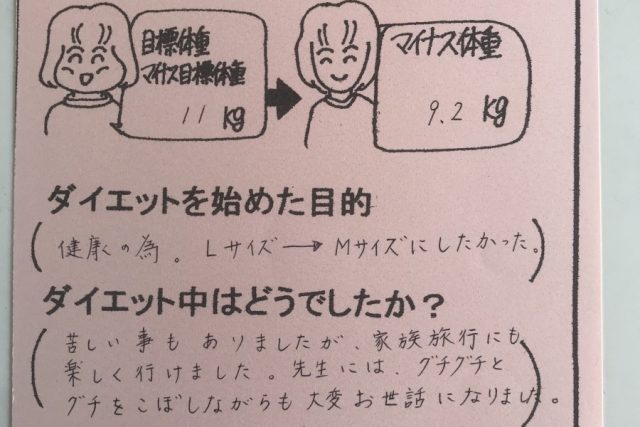 目標体重
マイナス目標体重
11 kg
マイナス体重
9.2 kg
ダイエットを始めた目的
健康の為。Lサイズ→Mサイズにしたかった。
ダイエット中はどうでしたか？
苦しい事もありましたが、家族旅行にも
楽しく行けました。先生には、グチグチと
グチをこぼしながらも大変お世話になりました。